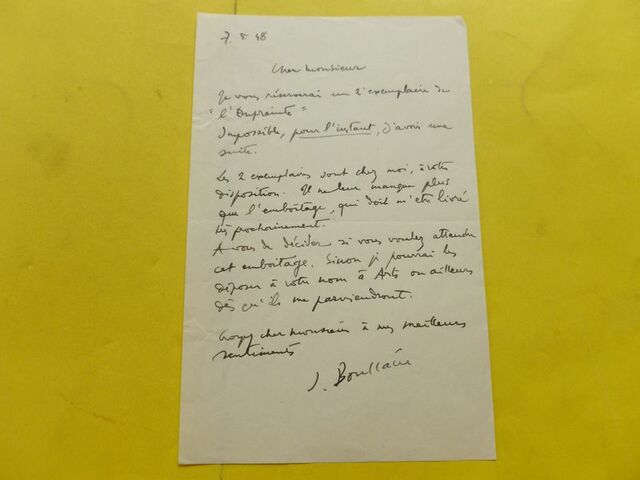 7. 5. 48
Cher Monsieur
Je vous réserverai un 2e exemplaire de
"l'Empreinte"
Impossible, pour l'instant, d'avoir une
suite.
Les 2 exemplaires sont chez moi, à votre
disposition. Il ne leur manque plus
que l'emboîtage, qui doit m'être livré
très prochainement.
A vous de décider si vous voulez attendre
cet emboîtage. Sinon je pourrai les
déposer à votre nom à Arts ou ailleurs
dès qu'ils me parviendront.
Croyez cher Monsieur à mes meilleurs
sentiments
J. Boullaire